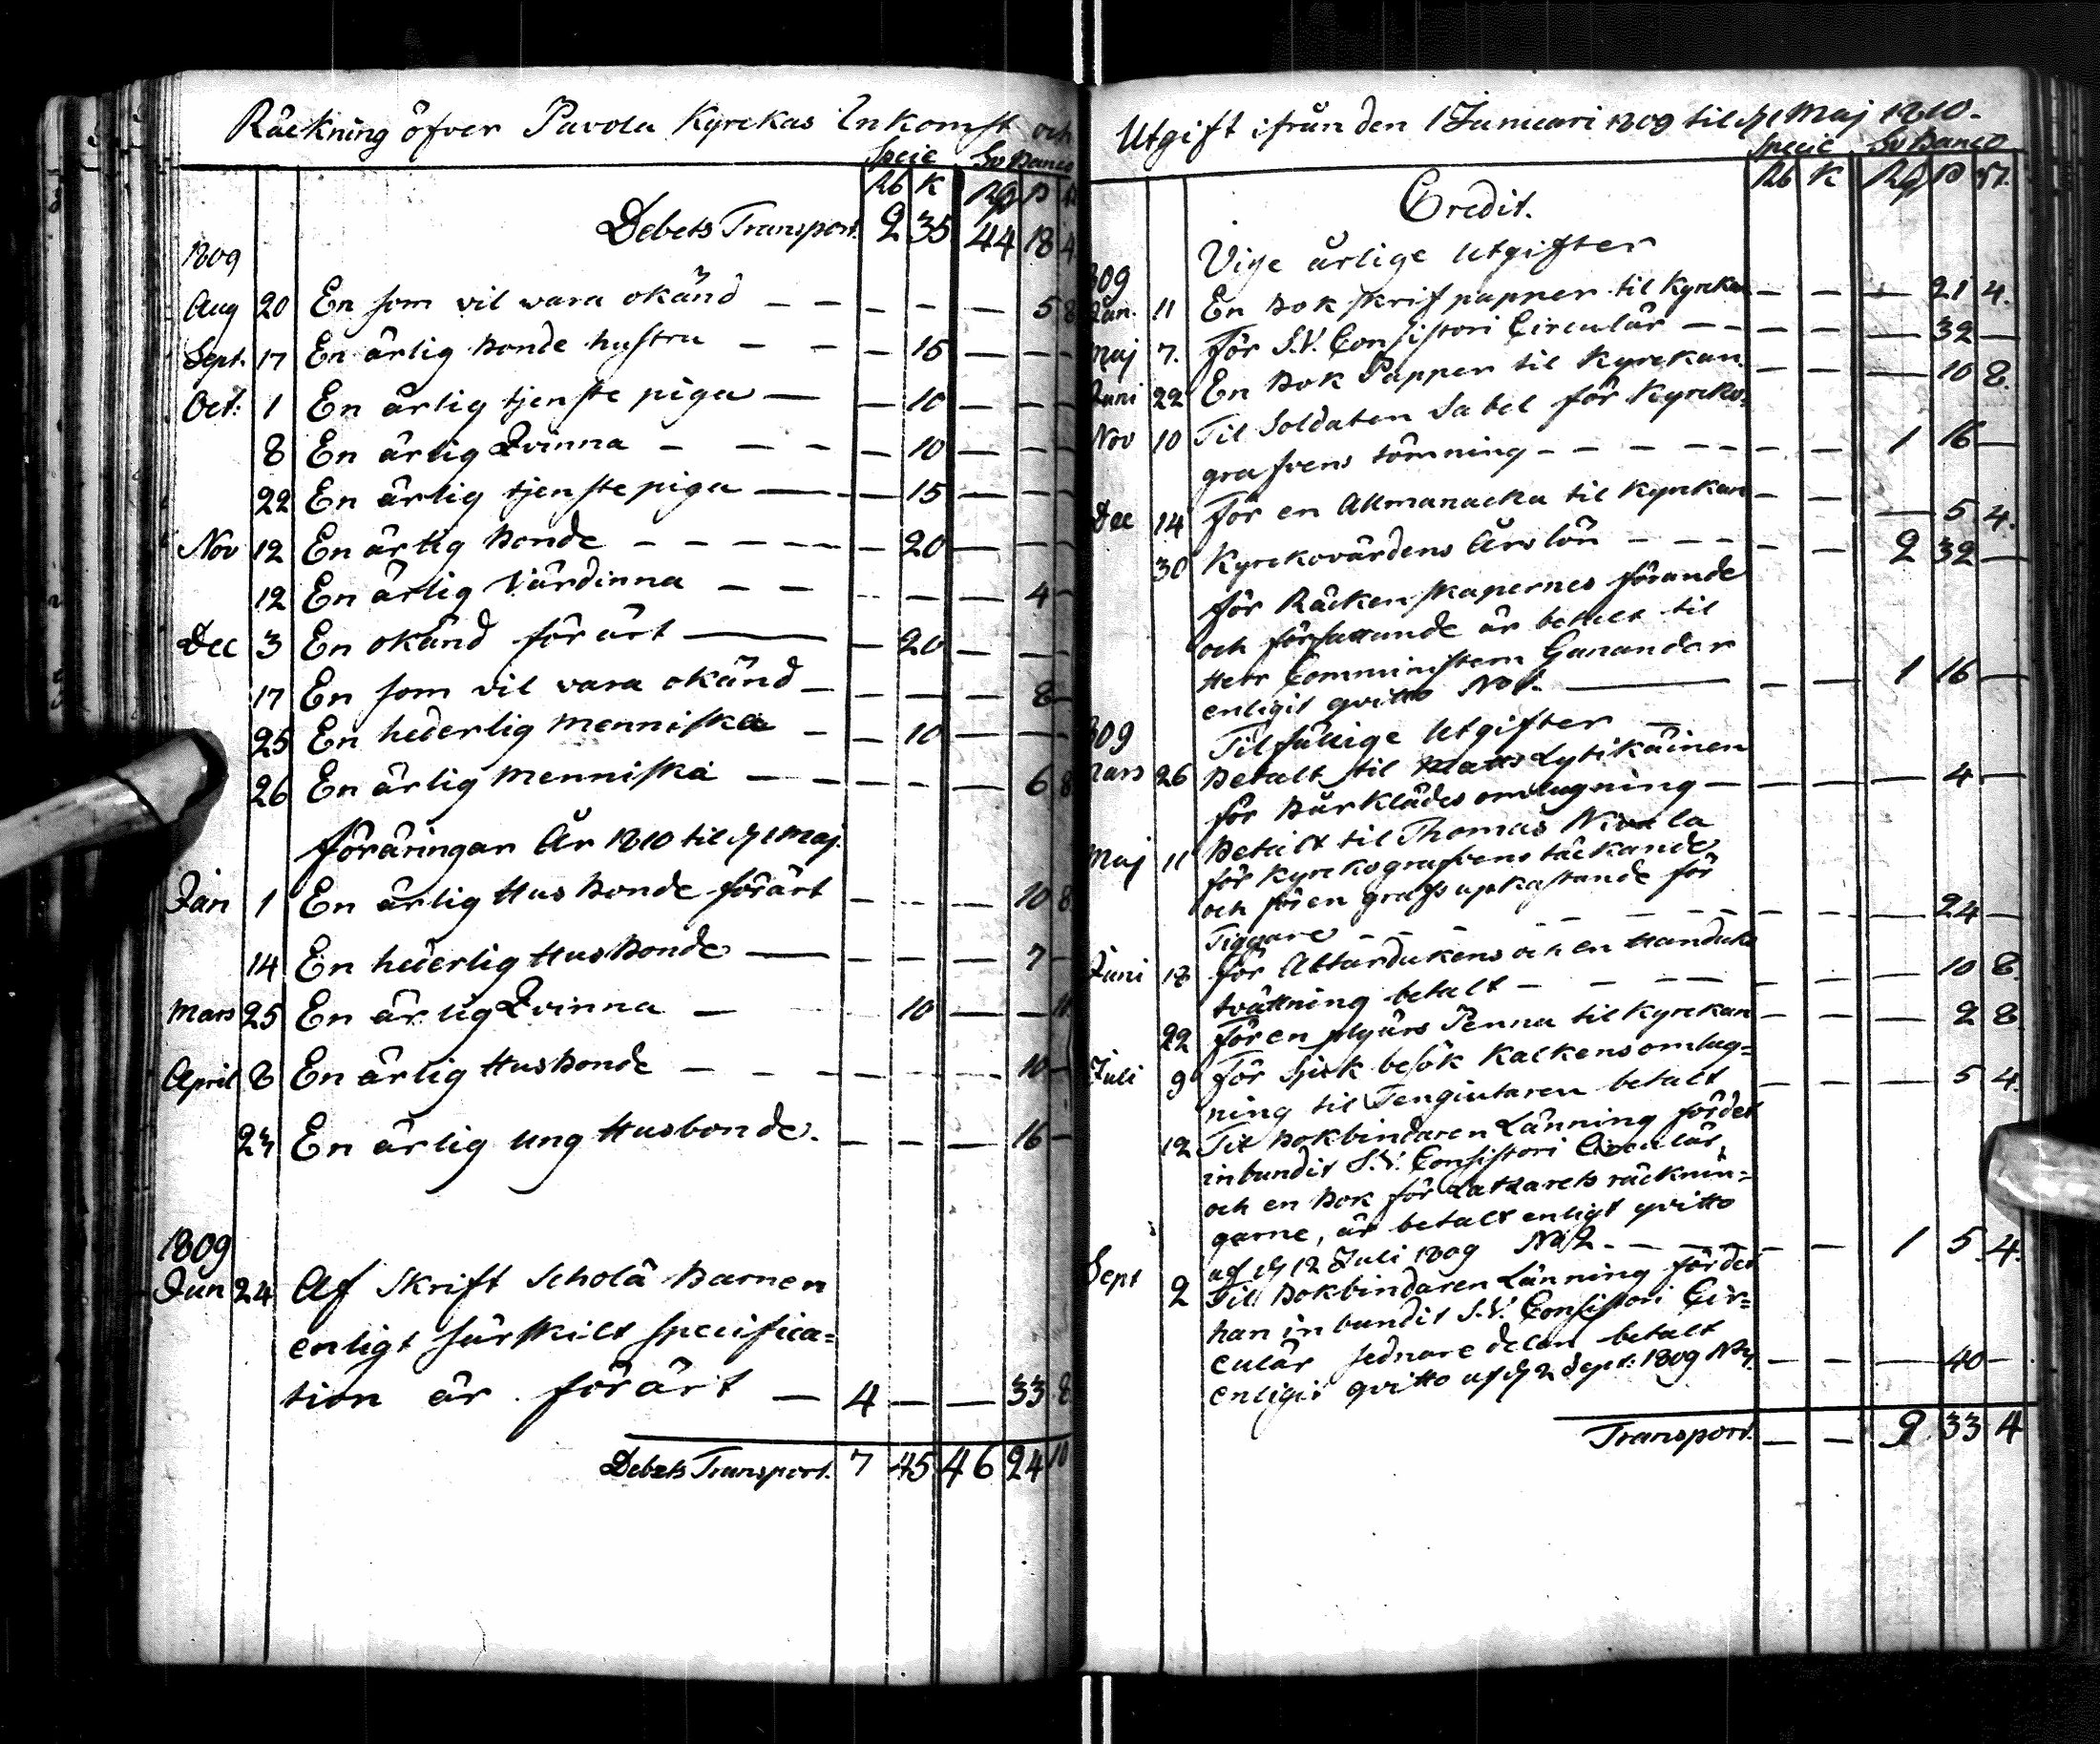 Räckning öfver Pavola Kyrckas Inkomst och
Specie Sv Banco
Rb K Rg ß
Debets Transport. 2 35 44 18 4
1809
Aug 20 En som vil vara okänd — — — — — 5 8
Sept. 17 En ärlig Bonde hustru — — — 15 — — —
Oct: 1 En ärlig tjenste piga — — 10 — — —
8 En ärlig Qvinna — — — — 10 — — —
22 En ärlig tjenste piga — — 15 — — —
Nov 12 En ärlig Bonde — — — — — 20 — — —
12 En ärlig Värdinna — — — — — 4 —
Dec 3 En okänd förärt — — 20 — — —
17 En som vil vara okänd — — — — 8 —
25 En hederlig Menniska — — 10 — — —
26 En ärlig Menniska — — — — — 6 8
föräringar År 1810 til d 1 Maj.
Jan 1 En ärlig Husbonde förärt — — — 10 8
14 En hederlig Husbonde — — — — 7 —
Mars 25 En ärlig Qvinna — 10 — —
April 8 En ärlig Husbonde — — — — — — 10 —
23 En ärlig ung Husbonde. — — — 16 —
1809
Jun 24 Af Skrift Schola Barnen
enligt särskilt specifica=
tion är förärt — 4 — — 33 8
Debets Transport. 7 45 46 24 10
Utgift ifrån den 1 Januari 1809 til d 1 Maj 1810.
Specie Sv Banco
Rb K Rg ß
Credit.
Vise årlige Utgifter
809
Jan. 11 En Bok skrif papper til Kyrckan — — — 21 4.
Maj 7. För S.V. Consistori Circulär — — — — — 32 —
Juni 22 En Bok Papper til Kyrckan. — — — 10 8.
Nov 10 Til Soldaten Sabel för Kyrcko=
grafvens tömning — — — — — — — 1 16 —
Dec 14 För en Allmanacka til Kyrckan — — — 5 4.
30 Kyrckovärdens Årslön — — — — — 2 32 —
för Räckenskapernes förande
och författande är betalt til
Herr Comministern Ganander
enligit qvitto No 1. — — — 1 16 —
809 Tilfällige Utgifter —
Mars 26 Betalt til Mats Lytikäinen
för Bårklädes omlagning — — — — 4 —
Maj 11 Betalt til Thomas Nivala
för Kyrckografvens täckande
och för en grafs upkastande för
Tiggare — — — — — — — — 24 —
Juni 18 för Altardukens och en Handuks
tvättning betalt — — — — — — — 10 8.
22 För en Penna til Kyrckan — — — 2 8
Juli 9 För Sjuk besök Kalkens omlag=
ning til Tengjutaren betalt — — — 5 4.
12 Til Bokbindaren Länning för det
inbundit S.V. Consistori Circulär,
och en Bok för Lazarets räcknin=
garne, är betalt enligt qvitto
af d 12 Juli 1809 No 2. — — — — 1 5 4.
Sept 2 Til Bokbindaren Länning för det
han inbundit S.V. Consistori Cir=
culär sednare delen betalt
enligit qvitto af d 2 Sept: 1809 No 3. — — — 40 —
Transport. — — 9 33 4